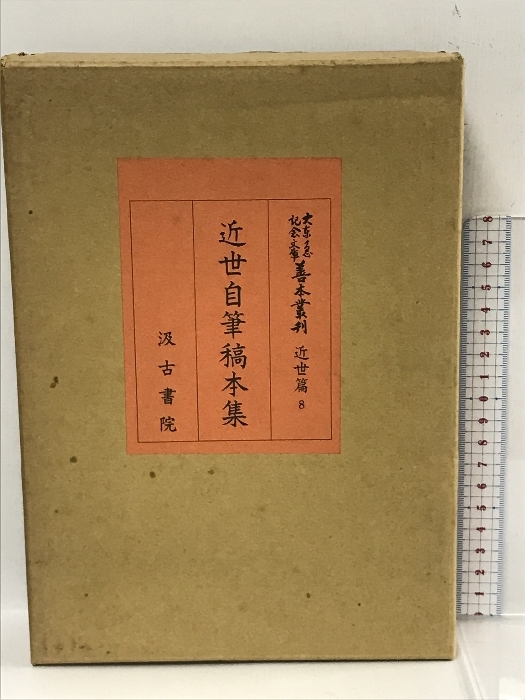 大東急
記念文庫
善本叢刊 近世篇 8
近世自筆稿本集
汲古書院
8
7
6
5
4
3
2
1
0
9
8
7
6
5
4
3
2
1